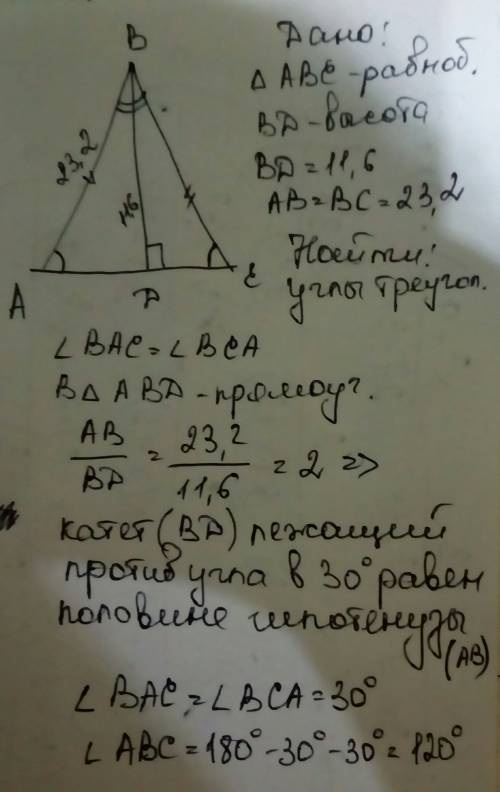 B
23,2
11,6
A
D
C
Дано:
△ ABC - равноб.
BD - высота
BD = 11,6
AB = BC = 23,2
Найти:
углы треугол.
∠ BAC = ∠ BCA
В △ ABD - прямоуг.
AB/BD = 23,2/11,6 = 2 =>
катет (BD) лежащий
против угла в 30° равен
половине гипотенузы
(AB)
∠ BAC = ∠ BCA = 30°
∠ ABC = 180° - 30° - 30° = 120°